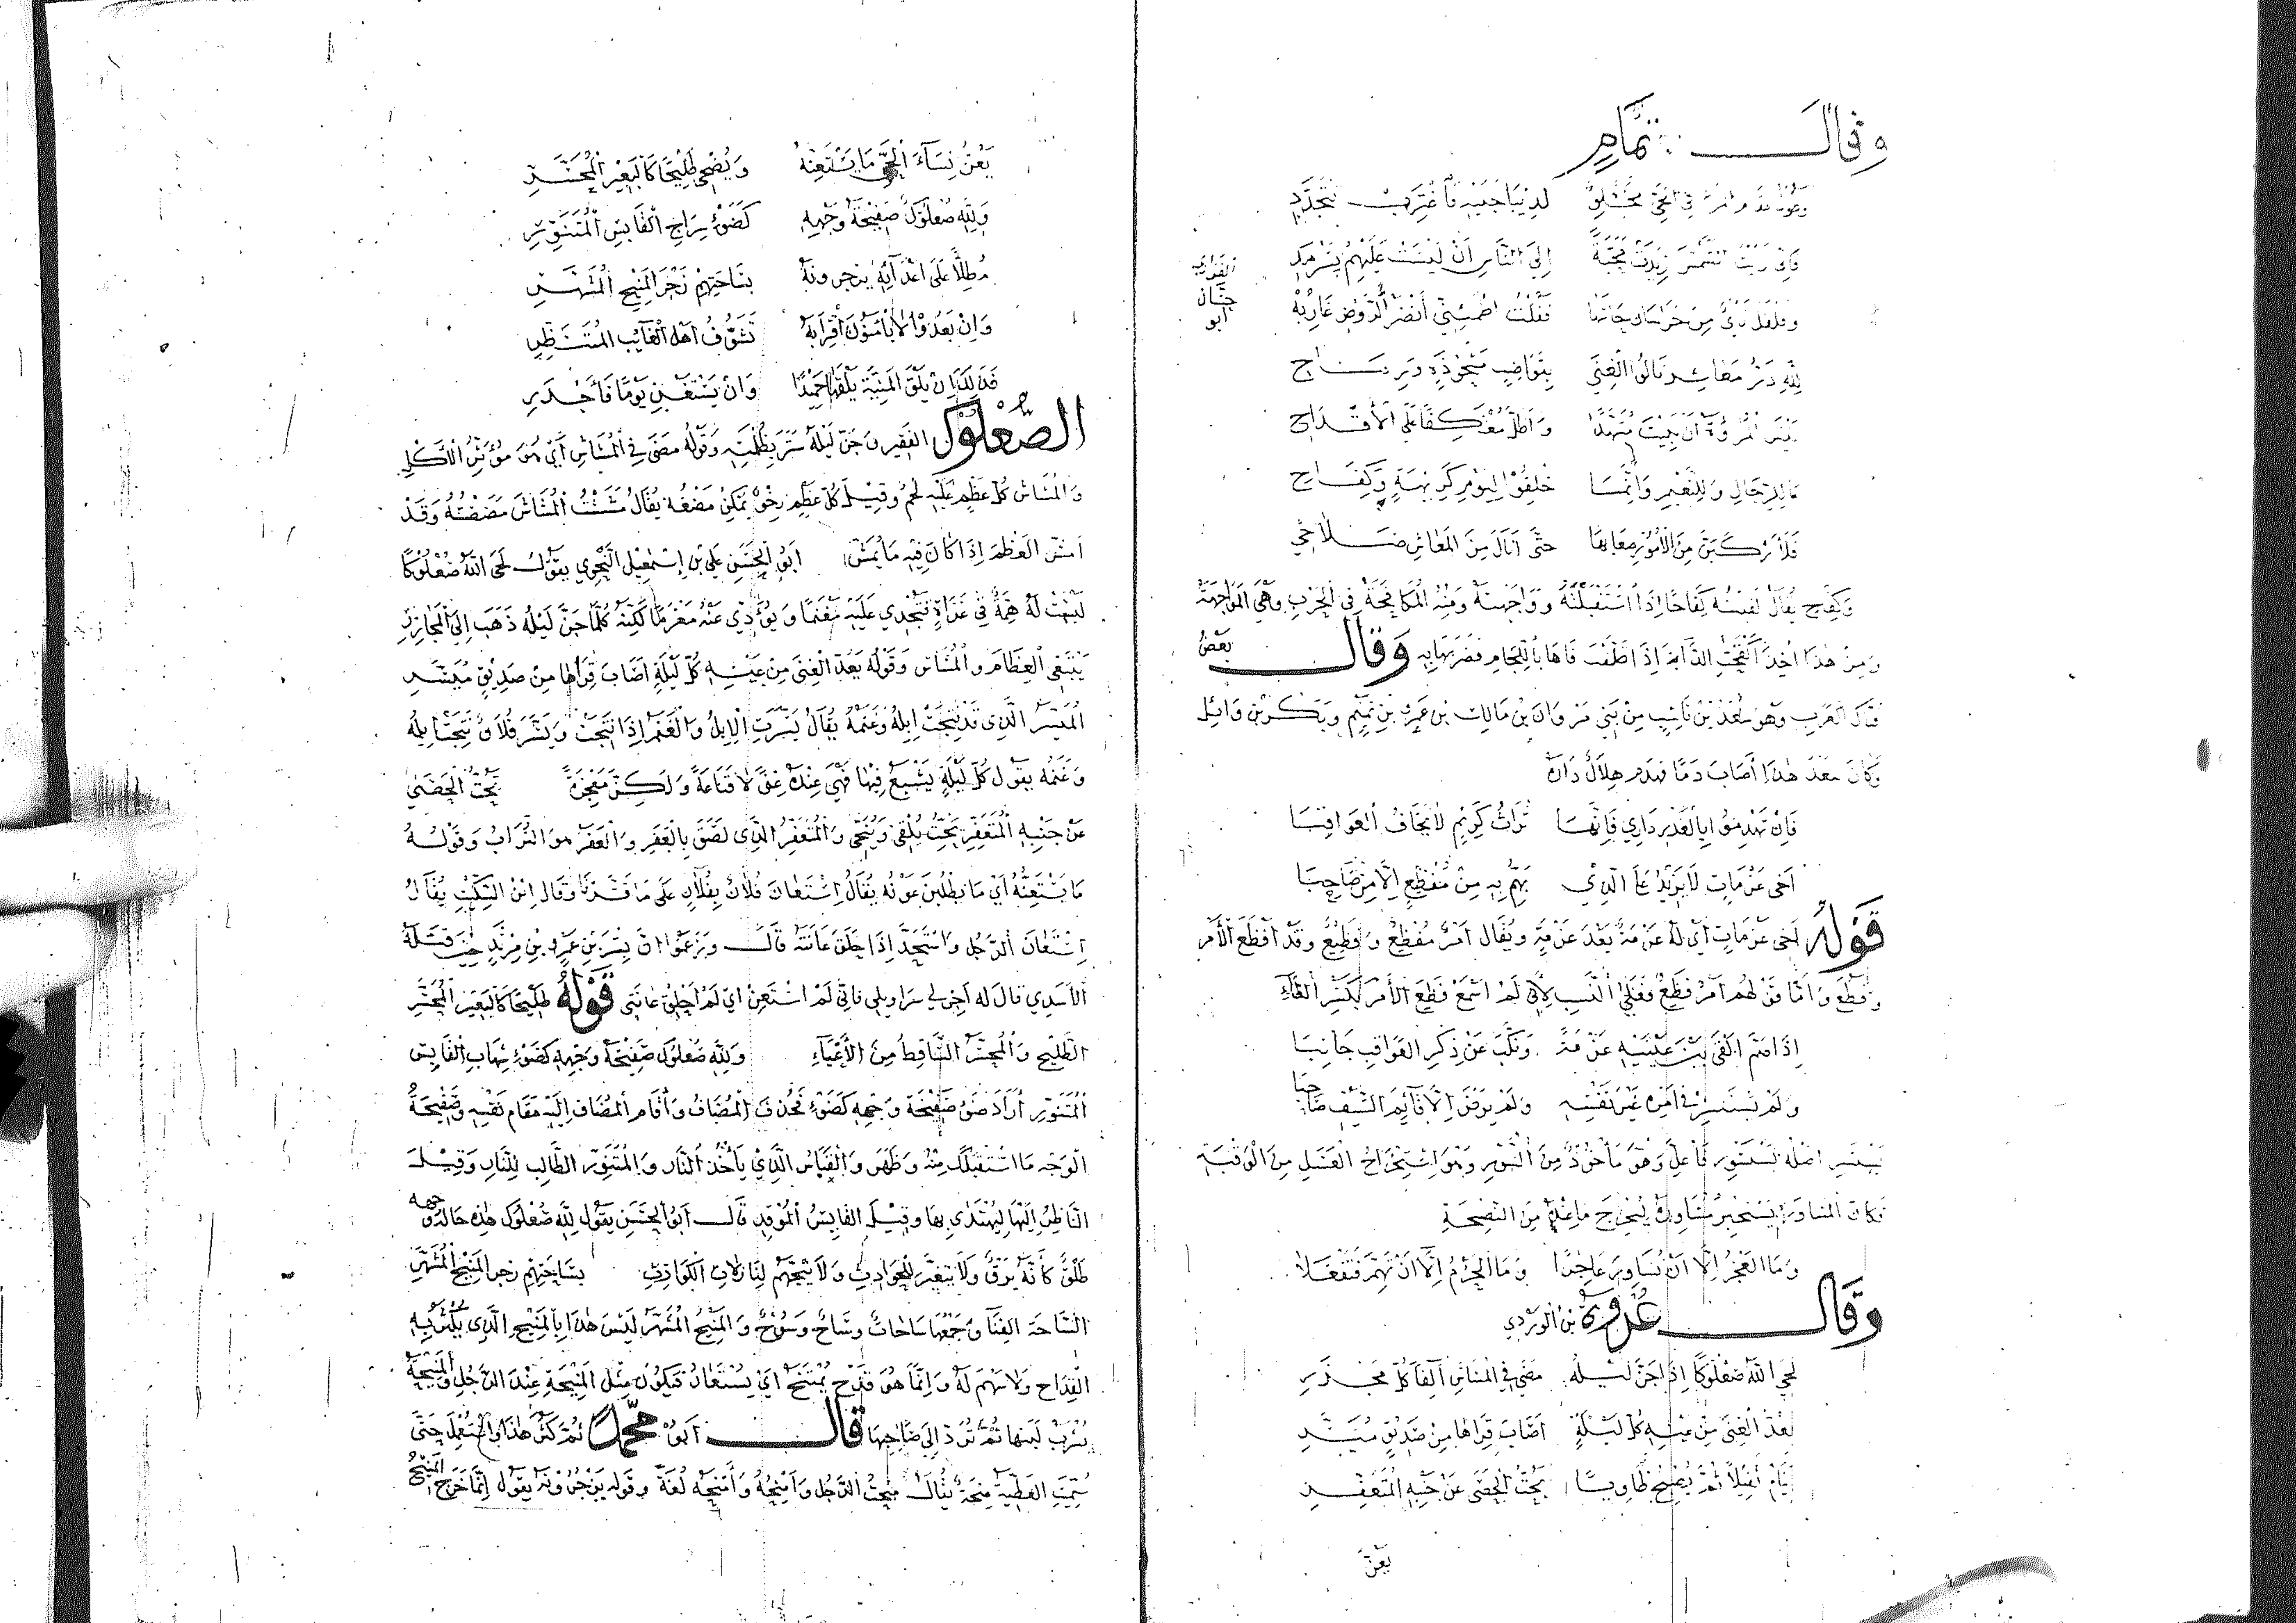 وقال تمام
وطول مقام المرء في الحي مخلق لديباجتيه فاغترب تتجدد
فاني رايت الشمس زيدت محبة الى الناس ان ليست عليهم بسرمد
القزاري
حبان
ابو
فقلت اطمئني أنضر الروض عازبه
لله در معاشر نالوا الغنى
وأظل معتكفا على الأقداح
ما للرجال وللنعيم وانما خلقوا ليوم كريهة وكفاح
فلأتركبن من الأمور صعابها حتى أنال من المعاش صلاحي
وكفح يقال لقيته كفاحا اذا استقبلته وواجهته ومنه المكافحة في الحرب وهي المواجهة
ومن هذا اخذ أكفحت الدابة اذا تلقفت فاها باللجام فضربتها به وقال بعض
فتاك العرب وهو سعد بن ناشب من بني مروان بن مالك بن عمرو بن تميم وبكر بن وائل
وكان سعد هذا أصاب دما فهدم هلال داره
فان تهدموا بالغدر داري فانها تراث كريم لا يخاف العواقبا
أخي عزمات لا يريد على الذي يهم به من مفظع الامر صاحبا
قوله أخي عزمات أي له عزمة بعد عزمة ويقال أمر مفظع وفظيع وقد أفظع الأمر
وفظع وأما قولهم أمر فظع فعلى النسب لأني لم اسمع فظع الأمر بكسر الظاء
اذا هم القى بين عينيه عزمة ونكب عن ذكر العواقب جانبا
ولم يستشر في أمره غير نفسه ولم يرض الا قائم السيف صاحبا
يستشر اصله يستشور فاعل وهو مأخوذ من الشور وهو استخراج العسل من الوقبة
فكان المشاور يستخرج ما عنده من النصيحة
وما العجز الا أن تشاور عاجزا وما الحزم الا أن تهم فتفعلا
وقال عروة بن الورد
لحى الله صعلوكا اذا جن ليله مضى في المشاش آلفا كل مجزر
يعد الغنى من عيشه كل ليلة أصاب قراها من صديق ميسر
ينام ثقيلا ثم يصبح طاويا يحت الحصى عن جنبه المتعفر
يعن
يعن نساء الحي ما يستعنه ويضحي طليحا كالبعير المحسر
ولله صعلوك صفيحة وجهه كضوء سراج القابس المتنور
مطلا على اعدائه يزجرونه بساحتهم زجر المنيح المشهر
وان بعدوا لا يأمنون اقترابه تشوف أهل الغائب المتنظر
فذلك ان يلق المنية يلقها حميدا وان يستغن يوما فأجدر
الصعلوك الفقير وجن ليله ستر بظلمته وقوله مضى في المشاش أي هو مؤثر الأكل
والمشاش كل عظم عليه لحم وقيل كل عظم رخو يمكن مضغه يقال مششت المشاش مضغته وقد
امش العظم اذا كان فيه ما يمش ابو الحسن علي بن إسمعيل النحوي يقول لحى الله صعلوكا
ليست له همة في غزاة تجدي عليه مغنما ويؤدي عنه مغرما لكنه كلما جن ليله ذهب الى المجازر
يبتغي العظام والمشاش وقوله يعد الغنى من عيشه كل ليلة أصاب قراها من صديق ميسر
الميسر الذي قد نتجت إبله وغنمه يقال يسرت الإبل والغنم إذا نتجت ويسر فلان نتجت إبله
وغنمه يقول كل ليلة يشبع فيها فهي عنده غنى لا قناعة ولكن معجزة يحت الحصى
عن جنبه المتعفر يحت يلقي وينحي والمتعفر الذي لصق بالعفر والعفر هو التراب وقوله
ما يستعنه أي ما يطلبن عونه يقال استعان فلان بفلان على ما قدرنا وقال ابن السكيت يقال
استعان الرجل واستحد اذا حلق عانته قال وزعموا ان بشر بن عمرو بن مرثد حين قتله
الأسدي قال له أجر لي سراويلي فاني لم استعن اي لم احلق عانتي قوله طليحا كالبعير المحسر
الطليح والمحسر الساقط من الأعياء ولله صعلوك صفيحة وجهه كضوء شهاب القابس
المتنور أراد ضوء صفيحة وجهه كضوء فحذف المضاف وأقام المضاف اليه مقام نفسه وصفيحة
الوجه ما استقبلك منه وظهر والقباس الذي يأخذ النار والمتنور الطالب للنار وقيل
الناظر إليها ليهتدي بها وقيل القابس الموقد قال أبو الحسن يقول لله صعلوك هذه حاله ووجهه
طلق كأنه برق ولا يتغير للحوادث ولا يتجهم لنازلات الكوارث بساحتهم زجر المنيح المشهر
الساحة الفناء وجمعها ساحات وساح وسوح والمنيح المشهر ليس هذا بالمنيح الذي يكثر به
القداح ولا سهم له وانما هو قدح يمتنح أي يستعار فيكون مثل المنيحة عند الرجل والمنيحة
يشرب لبنها ثم ترد الى صاحبها قال أبو محمد ثم كثر هذا واستعمل حتى
سميت العطية منحة يقال منحت الرجل وأمنحه وأمنحه لغة وقوله يزجرونه يقول انما خرج المنيح